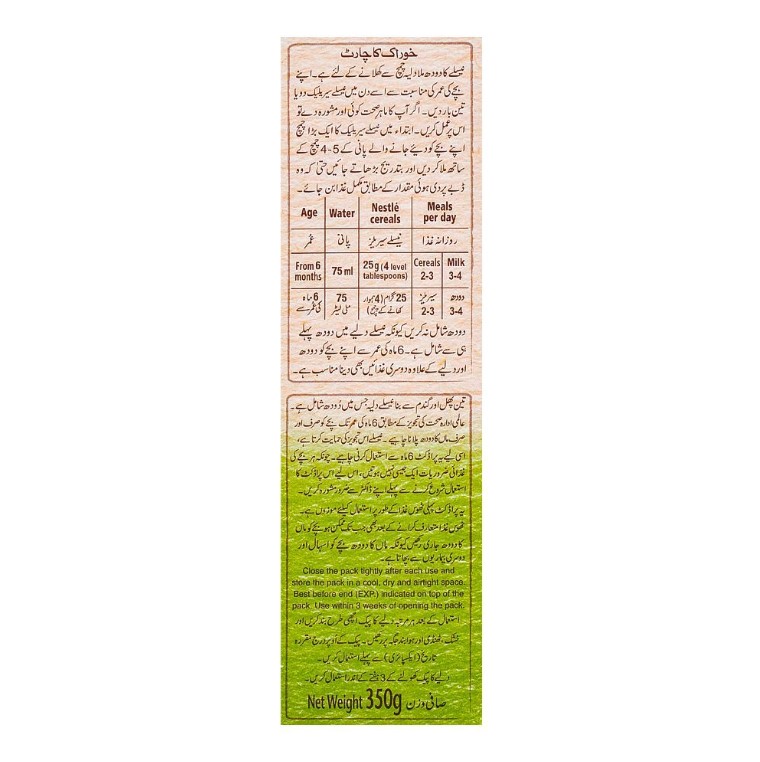 خوراک کا چارٹ
نیسلے کا دودھ ملا دلیہ چمچ سے کھلانے کے لئے ہے۔ اپنے
بچے کی عمر کی مناسبت سے اسے دن میں نیسلے سیریلیک دو یا
تین بار دیں۔ اگر آپ کا ماہر صحت کوئی اور مشورہ دے تو
اس پر عمل کریں۔ ابتداء میں نیسلے سیریلیک کا ایک بڑا چمچ
اپنے بچے کو دیئے جانے والے پانی کے 5-4 چمچ کے
ساتھ ملا کر دیں اور بتدریج بڑھاتے جائیں حتیٰ کہ وہ
ڈبے پر دی ہوئی مقدار کے مطابق مکمل غذا بن جائے۔
Age Water Nestlé cereals Meals per day
عُمر پانی نیسلے سیریلز روزانہ غذا
From 6 months 75 ml 25g (4 level tablespoons) Cereals 2-3 Milk 3-4
6 ماہ کی عُمر سے 75 ملی لیٹر 25 گرام (4 ہموار کھانے کے چمچ) سیریلز 2-3 دودھ 3-4
دودھ شامل نہ کریں کیونکہ نیسلے دلیے میں دودھ پہلے
ہی سے شامل ہے۔ 6 ماہ کی عمر سے اپنے بچے کو دودھ
اور دلیے کے علاوہ دوسری غذائیں بھی دینا مناسب ہے۔
تین پھل اور گندم سے بنا نیسلے دلیہ جس میں دُودھ شامل ہے۔
عالمی ادارہ صحت کی تجویز کے مطابق 6 ماہ کی عمر تک بچے کو صرف اور
صرف ماں کا دودھ پلانا چاہیے۔ نیسلے اس تجویز کی حمایت کرتا ہے،
اسی لیے یہ پراڈکٹ 6 ماہ سے استعمال کرنی چاہیے۔ چونکہ ہر بچے کی
غذائی ضروریات ایک جیسی نہیں ہوتیں، اس لیے اس پراڈکٹ کا
استعمال شروع کرنے سے پہلے اپنے ڈاکٹر سے ضرور مشورہ کریں۔
یہ پراڈکٹ پہلی ٹھوس غذا کے طور پر استعمال کیلئے موزوں ہے۔
ٹھوس غذا متعارف کرانے کے بعد بھی جب تک ممکن ہو بچے کو ماں
کا دودھ جاری رکھیں کیونکہ ماں کا دودھ بچے کو اسہال اور
دوسری بیماریوں سے بچاتا ہے۔
Close the pack tightly after each use and
store the pack in a cool, dry and airtight space.
Best before end (EXP.) indicated on top of the
pack. Use within 3 weeks of opening the pack.
استعمال کے بعد ہر مرتبہ دلیے کا پیک اچھی طرح بند کریں اور
خشک، ٹھنڈی اور ہوا بند جگہ پر رکھیں۔ پیک کے اُوپر درج مقررہ
تاریخ (ایکسپائری) سے پہلے استعمال کریں۔
دلیے کا پیک کھولنے کے 3 ہفتے کے اندر استعمال کریں۔
Net Weight 350g صافی وزن